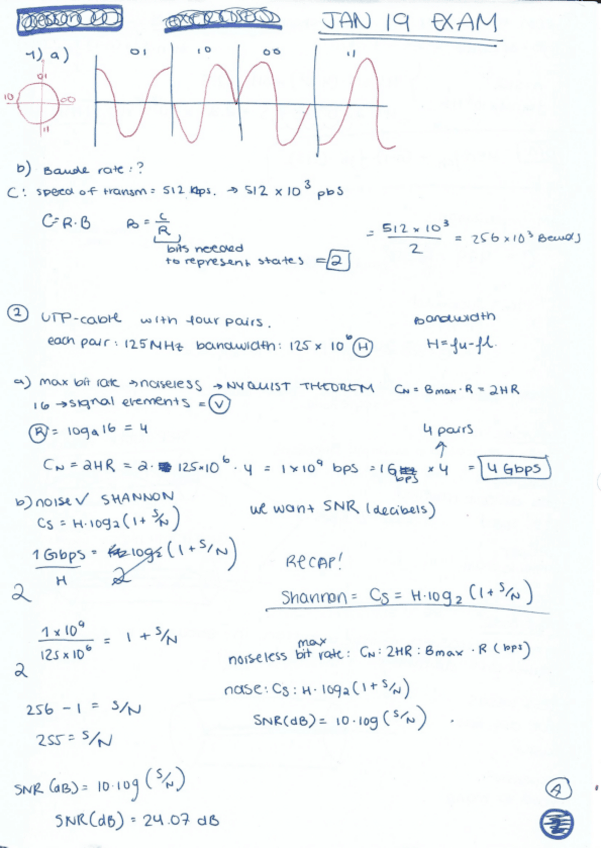 JAN 19 EXAM
1) a)
01 10 00 11
01
10 00
11
b) Baude rate: ?
C: speed of transm = 512 kbps. → 512 × 10³ pbs
C=R·B B = C/R = 512 × 10³ / 2 = 256 × 10³ Bauds
bits needed
to represent states = 2
2 UTP-cable with four pairs. Bandwidth
each pair: 125 MHz bandwidth: 125 × 10⁶ H H = fu - fl.
a) max bit rate → noiseless → NYQUIST THEOREM CN = Bmax · R = 2HR
16 → signal elements = V
R = log₂16 = 4 4 pairs
CN = 2HR = 2 · 125×10⁶ · 4 = 1 × 10⁹ bps = 1Gbps × 4 = 4 Gbps
b) noise ✓ SHANNON we want SNR (decibels)
Cs = H·log₂(1 + S/N)
1 Gbps / H = log₂(1 + S/N)
2 2
RECAP!
Shannon = Cs = H·log₂(1 + S/N)
1 × 10⁹ / 125 × 10⁶ = 1 + S/N
2
max
noiseless bit rate: CN: 2HR: Bmax · R (bps)
noise: Cs: H·log₂(1 + S/N)
SNR(dB) = 10·log(S/N)
256 - 1 = S/N
255 = S/N
SNR(dB) = 10·log(S/N)
SNR(dB) = 24.07 dB
A
2